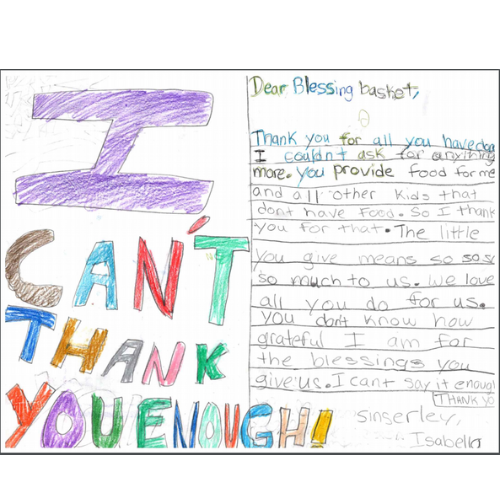 I
CAN'T
THANK
YOU ENOUGH!
Dear Blessing basket,
Thank you for all you have don
I couldn't ask for anything
more. you provide food for me
and all other kids that
don't have food. So I thank
you for that. The little
you give means so so s
so much to us. we love
all you do for us.
you don't know how
grateful I am for
the blessings you
give us. I cant say it enoug
THANK YO
sinserley,
Isabella